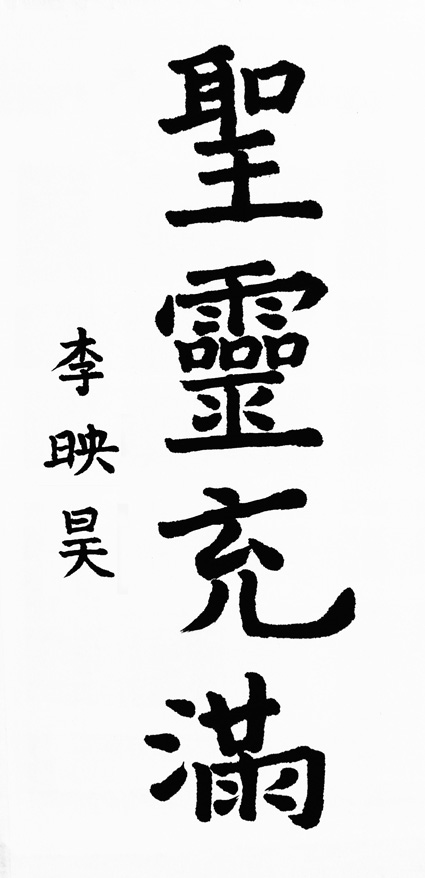 聖靈充滿
李映昊